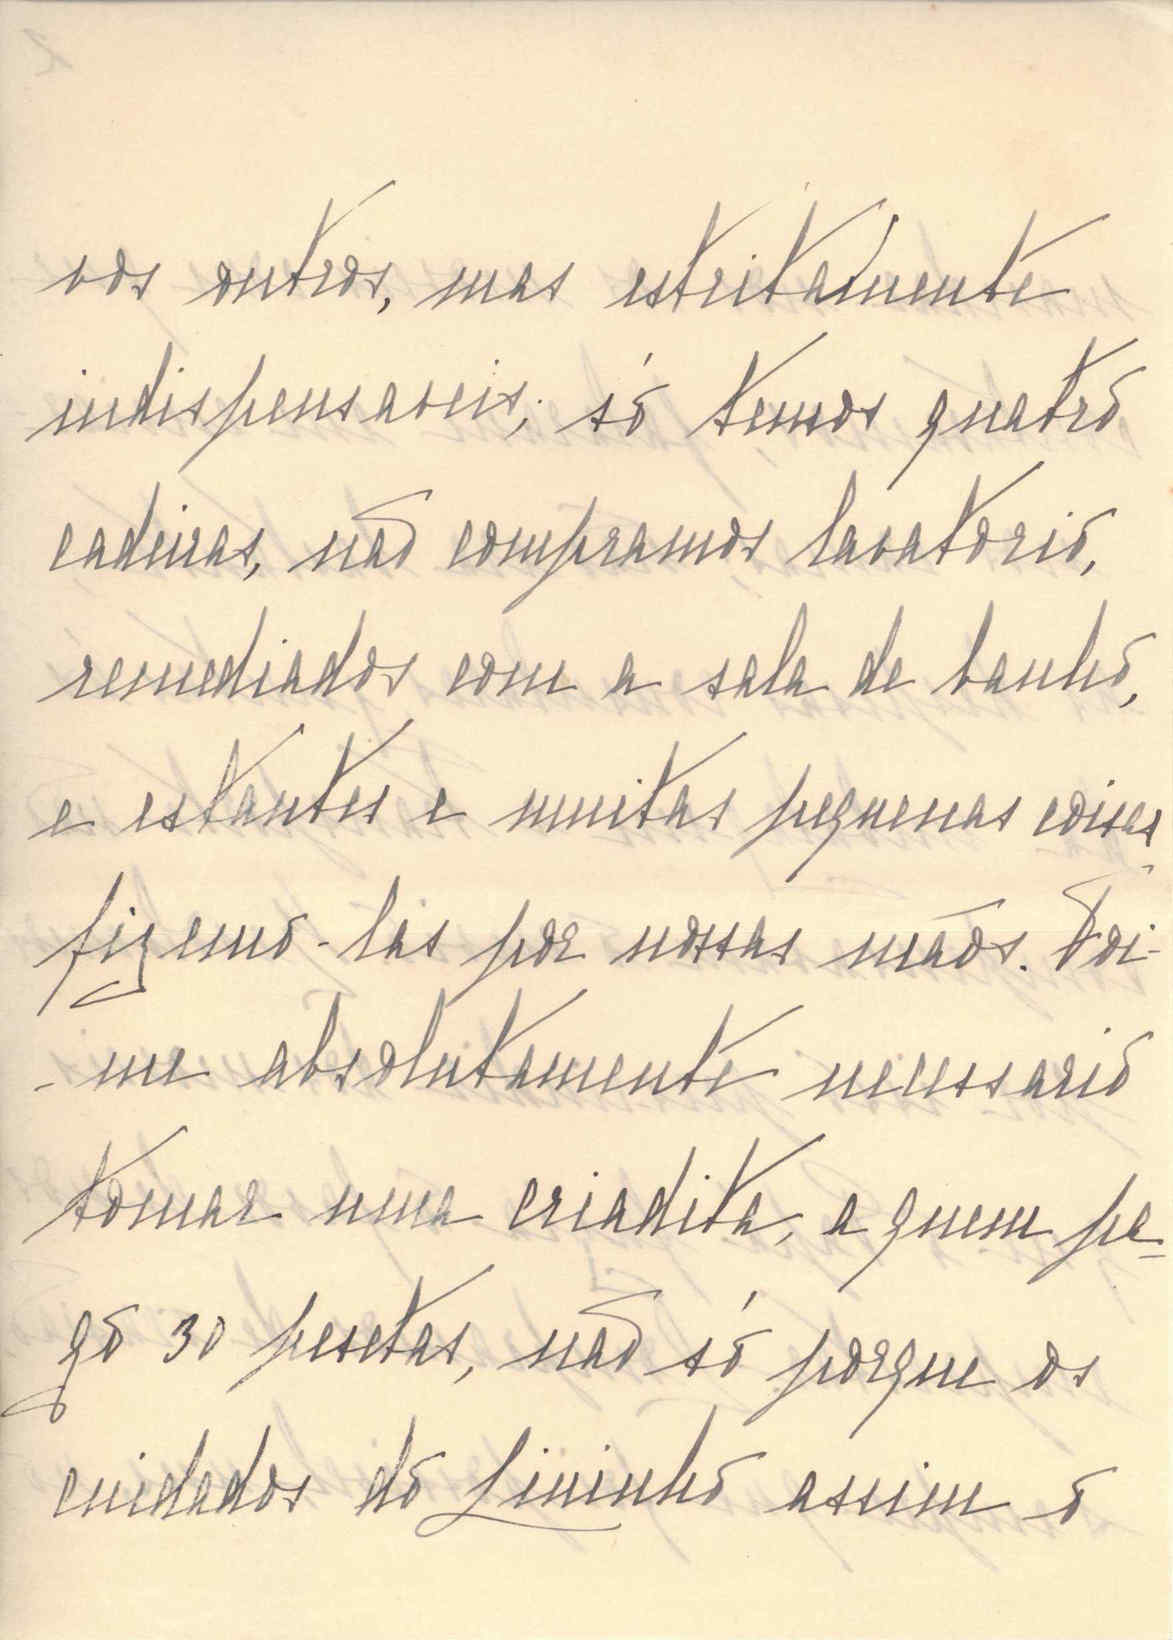 vos outros, mas estritamente
indispensaveis; só temos quatro
cadeiras, não compramos lavatorio,
remediados com a sala de banho,
e estantes e muitas pequenas coisas
fizemo-las por nossas mãos. Foi-
-me absolutamente necessario
tomar uma criadita, a quem pa-
go 30 pesetas, não só porque os
cuidados do Lininho assim o